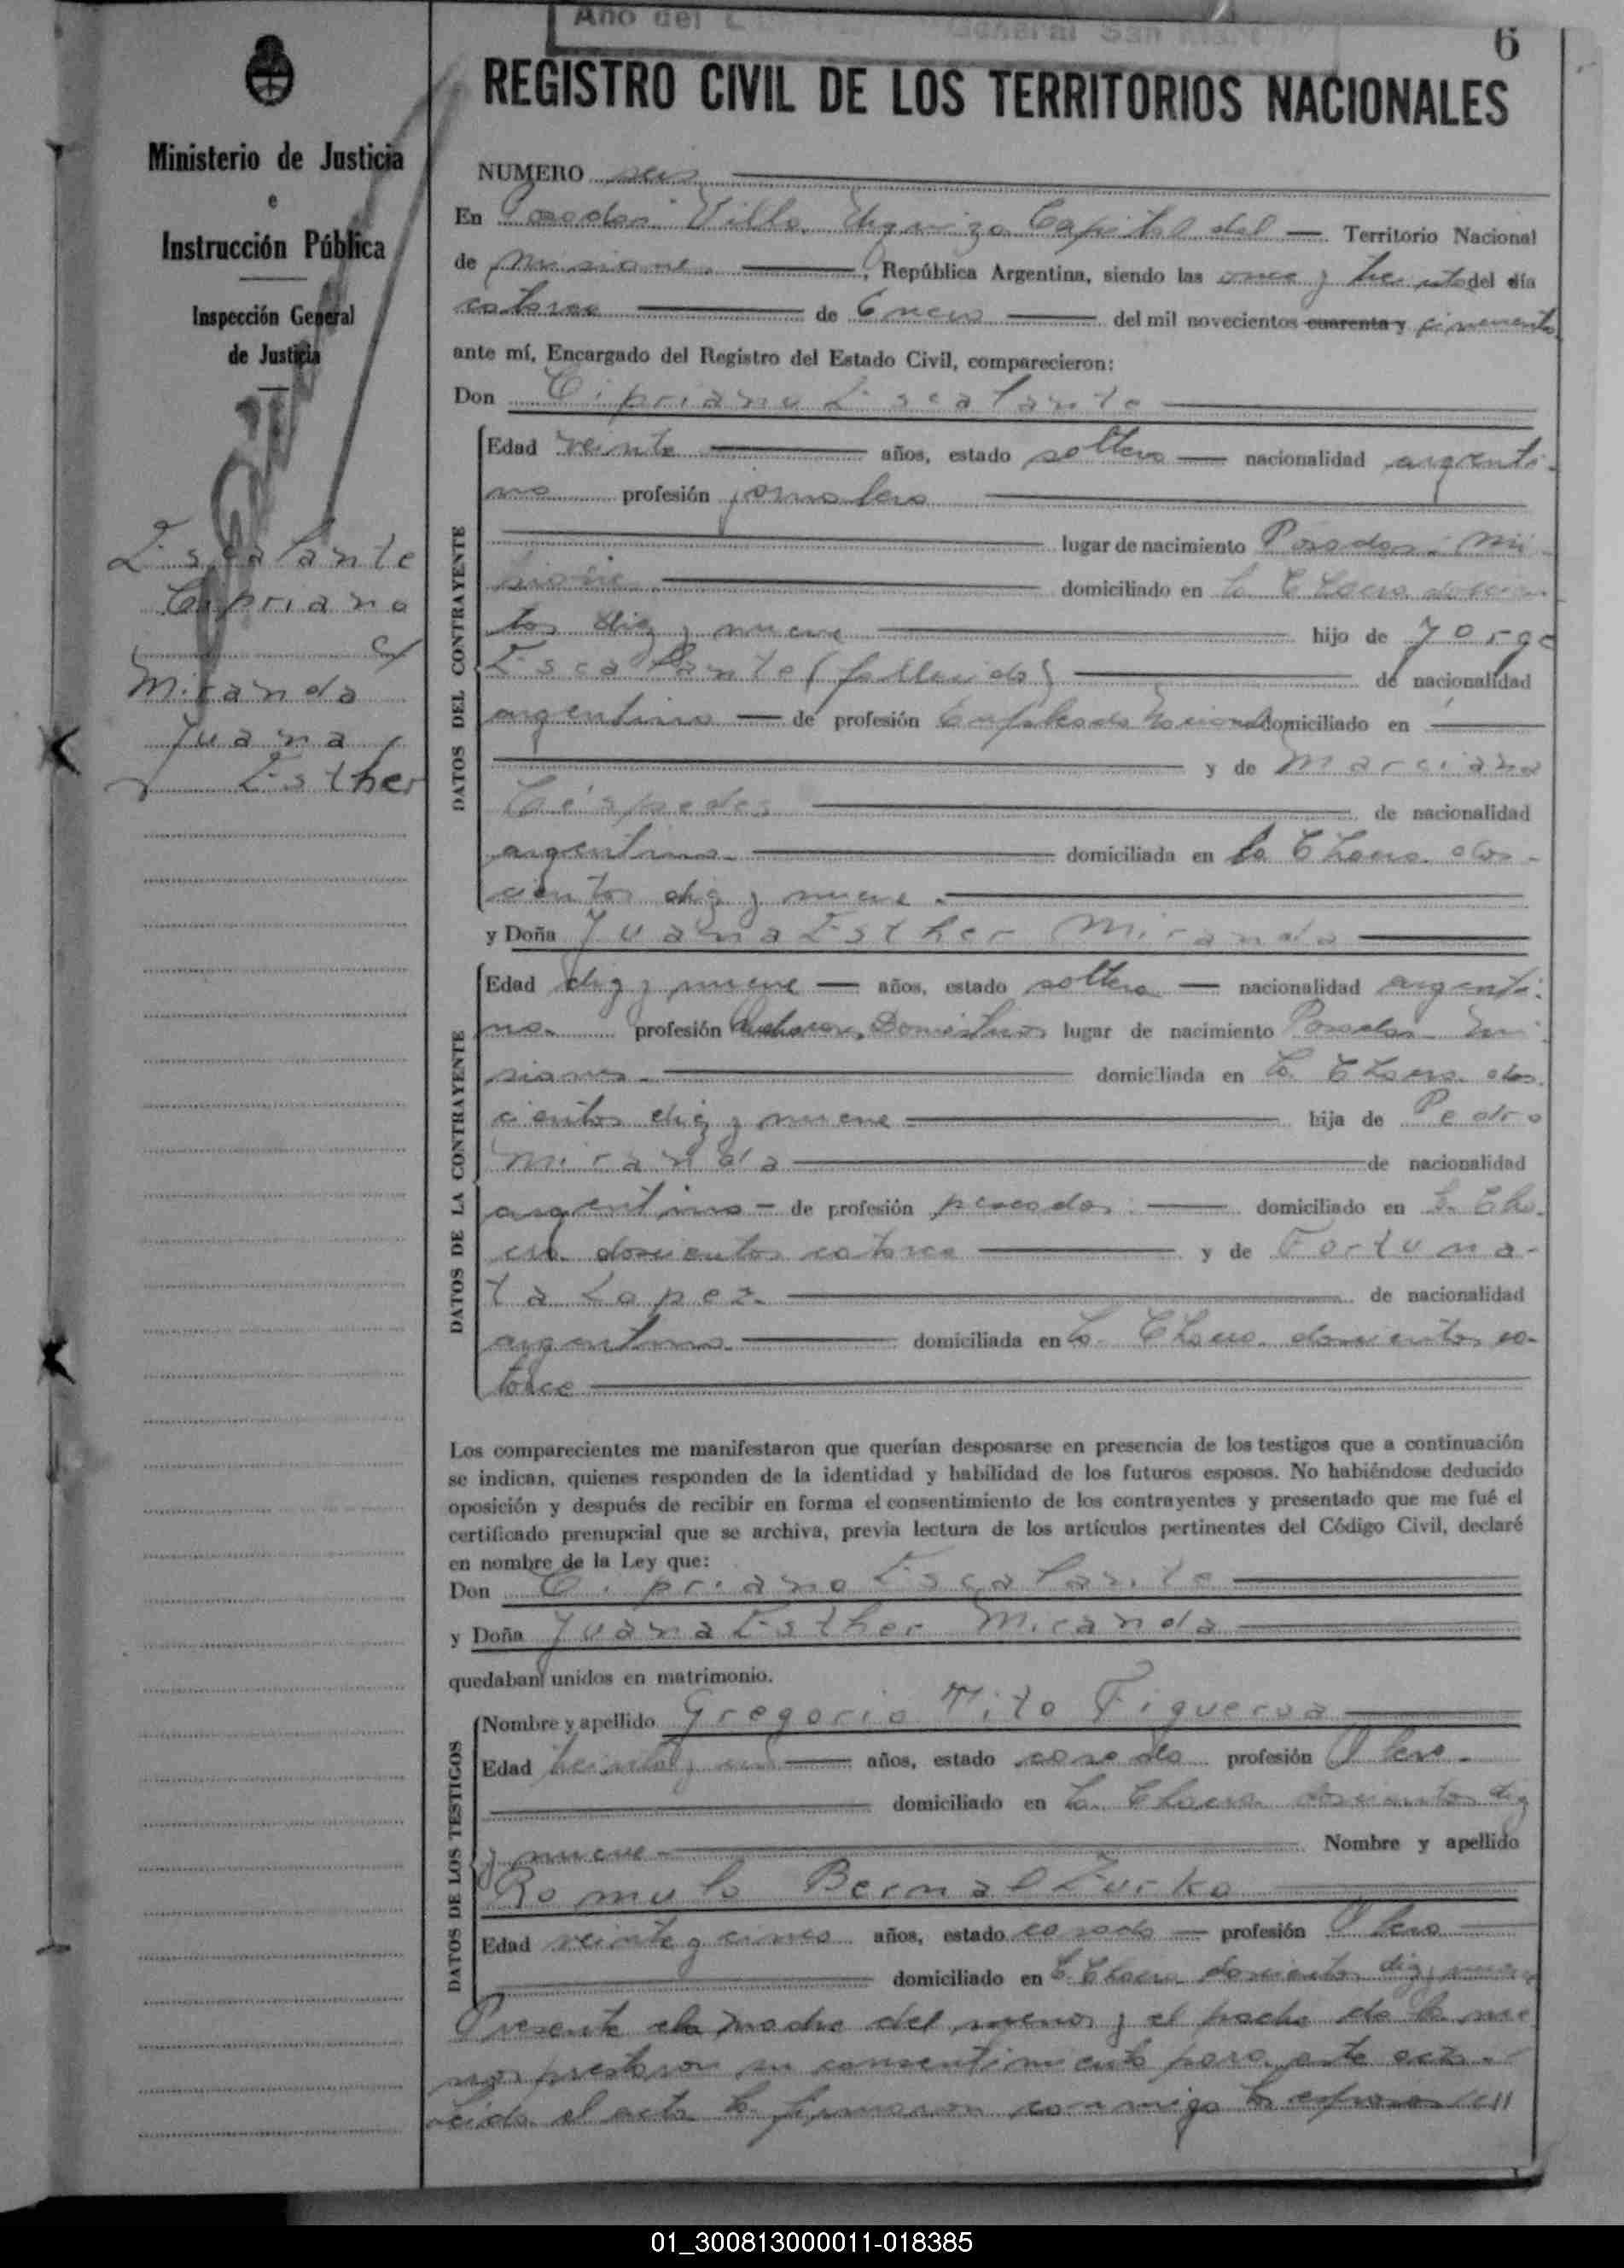 Año del General San Martín
6
REGISTRO CIVIL DE LOS TERRITORIOS NACIONALES
Ministerio de Justicia
e
Instrucción Pública
Inspección General
de Justicia
Escalante
Cipriano
c/
Miranda
Juana
Esther
NUMERO seis
En Posadas Villa Urquiza Capital del Territorio Nacional
de Misiones, República Argentina, siendo las once y treinta del día
catorce de Enero del mil novecientos cuarenta y cincuenta
ante mí, Encargado del Registro del Estado Civil, comparecieron:
Don Cipriano Escalante
DATOS DEL CONTRAYENTE
Edad veinte años, estado soltero nacionalidad argenti-
no profesión jornalero
lugar de nacimiento Posadas Mi-
siones domiciliado en la Chacra doscien-
tos diez y nueve hijo de Jorge
Escalante (fallecido) de nacionalidad
argentino de profesión Empleado Nacional domiciliado en
y de Marciana
Céspedes de nacionalidad
argentina domiciliada en la Chacra dos-
cientos diez y nueve.
y Doña Juana Esther Miranda
DATOS DE LA CONTRAYENTE
Edad diez y nueve años, estado soltera nacionalidad argenti-
na. profesión Domésticos lugar de nacimiento Posadas Mi-
siones domiciliada en la Chacra dos-
cientos diez y nueve hija de Pedro
Miranda de nacionalidad
argentino de profesión pescador domiciliado en la Cha-
cra doscientos catorce y de Fortuna-
ta Lopez de nacionalidad
argentina domiciliada en la Chacra doscientos ca-
torce
Los comparecientes me manifestaron que querían desposarse en presencia de los testigos que a continuación
se indican, quienes responden de la identidad y habilidad de los futuros esposos. No habiéndose deducido
oposición y después de recibir en forma el consentimiento de los contrayentes y presentado que me fué el
certificado prenupcial que se archiva, previa lectura de los artículos pertinentes del Código Civil, declaré
en nombre de la Ley que:
Don Cipriano Escalante
y Doña Juana Esther Miranda
quedaban unidos en matrimonio.
DATOS DE LOS TESTIGOS
Nombre y apellido Gregorio Tito Figueroa
Edad treinta y un años, estado casado profesión Obrero
domiciliado en la Chacra doscientos diez
y nueve Nombre y apellido
Romulo Bernal Zurko
Edad veinte y cinco años, estado casado profesión Obrero
domiciliado en la Chacra doscientos diez y nueve
Presente la madre del menor y el padre de la me-
nor prestaron su consentimiento para este acto.
Leida el acta la firmaron conmigo los esposos
01_300813000011-018385